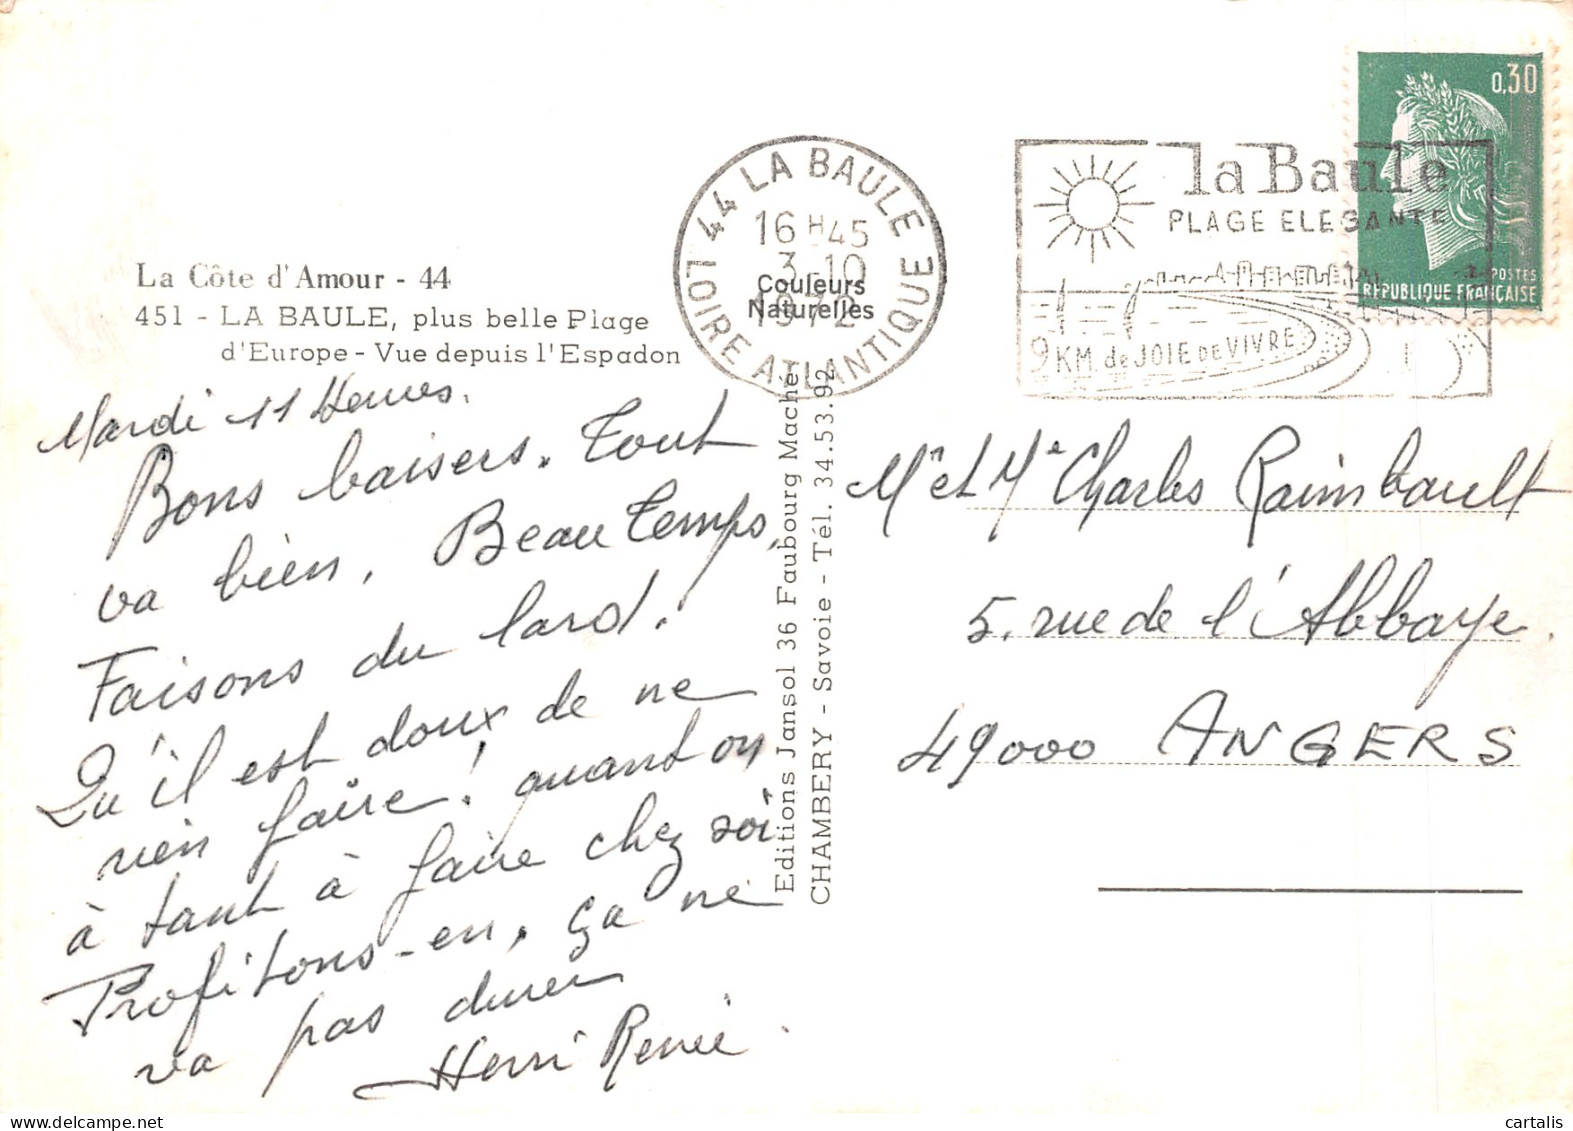 La Côte d'Amour - 44
451 - LA BAULE, plus belle Plage
d'Europe - Vue depuis l'Espadon
Mardi 11 Heures.
Bons baisers. Tout
va bien, Beau Temps,
Faisons du lard!
Qu'il est doux de ne
rien faire! quant on
à tant à faire chez soi
Profitons-en, ça ne
va pas durer
Henri Renée
44 LA BAULE
16 H 45
3-10
1972
LOIRE ATLANTIQUE
Couleurs
Naturelles
Editions Jansol 36 Faubourg Maché
CHAMBERY - Savoie - Tél. 34.53.92
la Baule
PLAGE ELEGANTE
9 KM. de JOIE DE VIVRE
0,30
POSTES
REPUBLIQUE FRANÇAISE
Mr et Me Charles Raimbault
5, rue de l'Abbaye.
49000 ANGERS
cartalis